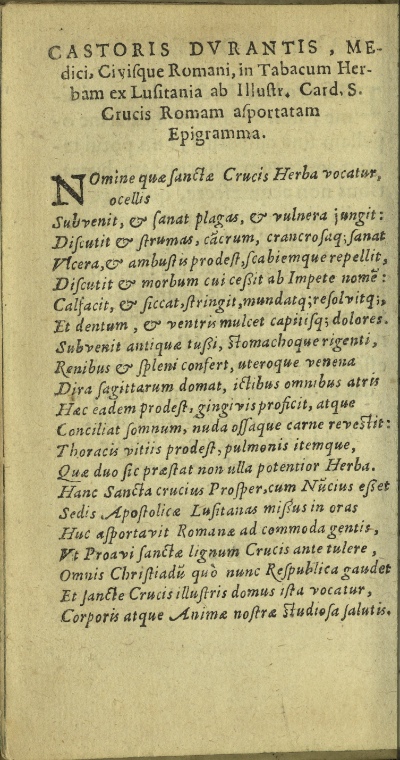 CASTORIS DVRANTIS, ME-
dici, Civiſque Romani, in Tabacum Her-
bam ex Luſitania ab Illuſtr. Card. S.
Crucis Romam aſportatam
Epigramma.
NOmine quæ ſanctæ Crucis Herba vocatur,
ocellis
Subvenit, & ſanat plagas, & vulnera jungit:
Diſcutit & ſtrumas, cãcrum, crancroſaq; ſanat
Vlcera, & ambuſtis prodeſt, ſcabiemque repellit,
Diſcutit & morbum cui ceßit ab Impete nomẽ:
Calfacit, & ſiccat, ſtringit, mundatq; reſolvitq;,
Et dentum, & ventris mulcet capitiſq; dolores.
Subvenit antiquæ tußi, ſtomachoque rigenti,
Renibus & ſpleni confert, uteroque venena
Dira ſagittarum domat, ictibus omnibus atris
Hæc eadem prodeſt, gingivis proficit, atque
Conciliat ſomnum, nuda oſſaque carne reveſtit:
Thoracis vitiis prodeſt, pulmonis itemque,
Quæ duo ſic præſtat non ulla potentior Herba.
Hanc Sancta crucius Proſper, cum Nũcius eßet
Sedis Apoſtolicæ Luſitanas mißus in oras
Huc aſportavit Romanæ ad commoda gentis,
Vt Proavi ſanctæ lignum Crucis ante tulere,
Omnis Chriſtiadũ quò nunc Reſpublica gaudet
Et ſancte Crucis illuſtris domus iſta vocatur,
Corporis atque Animæ noſtræ ſtudioſa ſalutis.